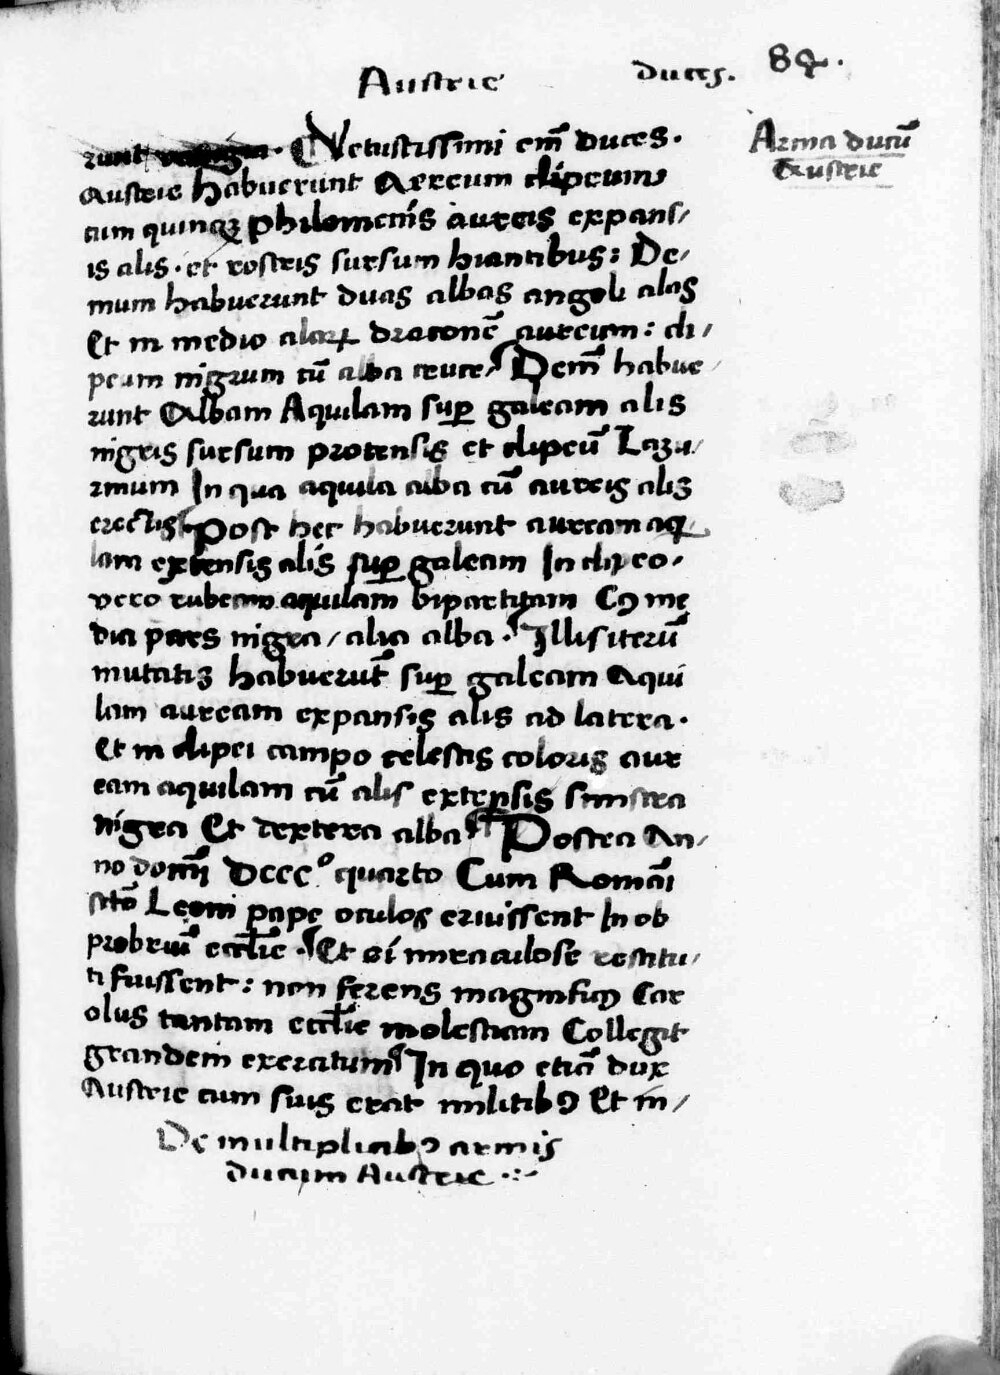 Austrie duces. 84.
Arma ducū
Austrie
runt . Vetustissimi em̄ duces.
Austrie habuerunt Aereum clipeum
cum quinqꝫ philomenis aureis expans/
is alis. et rostris sursum hiantibus: De/
mum habuerunt duas albas angeli alas
Et in medio alaꝝ draconē aureum: cli/
peum nigrum cū alba cruce/ Demū habue/
runt Albam Aquilam sup̲ galeam alis
nigris sursum protensis et clipeū Lazu/
rinum In qua aquila alba cū aureis alis
erectis Post hec habuerunt auream aq̲/
lam extensis alis sup̲ galeam In clipeo/
vero rubeam aquilam bipartitam Cꝯ me
dia pars nigra/ alia alba. Illis iterū
mutatis habuerūt sup̲ galeam Aqui
lam auream expansis alis ad latera.
Et in clipei campo celestis coloris aur
eam aquilam cū alis extensis sinistra
nigra Et dextera alba Postea An/
no domī DCCCº quarto Cum Romāi
scō Leoni pape oculos eruissent In ob
probriū eccl̄ie. Et ei miraculose restitu/
ti fuissent: non ferens magnificꝯ Car
olus tantam eccl̄ie molestiam Collegit
grandem exercitum In quo etiā dux
Austrie cum suis erat militibꝯ Et in/
De multiplicibꝯ armis
ducum Austrie .:~